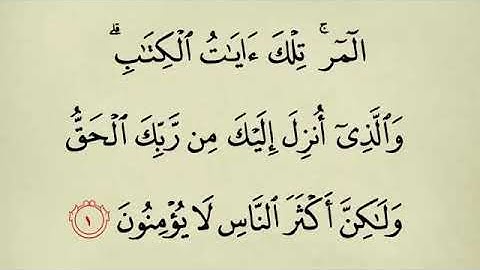 الٓمٓرۚ تِلۡكَ ءَايَٰتُ ٱلۡكِتَٰبِۗ
وَٱلَّذِيٓ أُنزِلَ إِلَيۡكَ مِن رَّبِّكَ ٱلۡحَقُّ
وَلَٰكِنَّ أَكۡثَرَ ٱلنَّاسِ لَا يُؤۡمِنُونَ ١